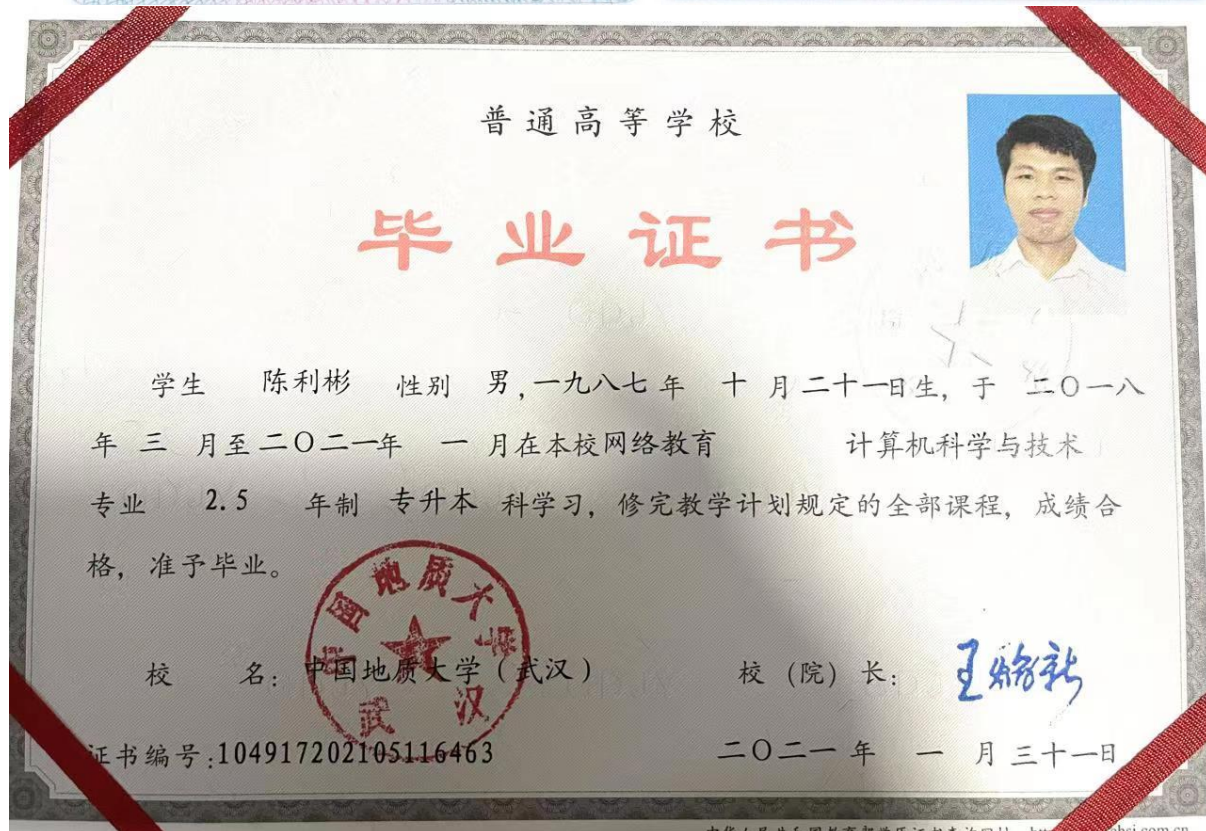 普通高等学校
毕业证书
学生 陈利彬 性别 男,一九八七年 十 月二十一日生,于 二〇一八
年 三 月至二〇二一年 一 月在本校网络教育 计算机科学与技术
专业 2.5 年制 专升本 科学习,修完教学计划规定的全部课程,成绩合
格,准予毕业。
中国地质大学
武汉
校 名:中国地质大学(武汉) 校(院)长:
证书编号:104917202105116463 二〇二一年 一 月三十一日